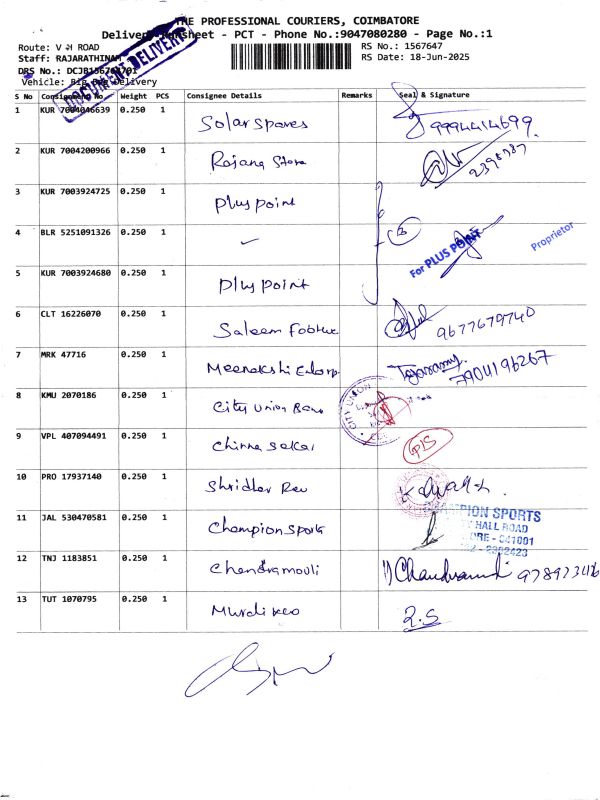 THE PROFESSIONAL COURIERS, COIMBATORE
Delivery Runsheet - PCT - Phone No.:9047080280 - Page No.:1
Route: V H ROAD
RS No.: 1567647
Staff: RAJARATHINAM
RS Date: 18-Jun-2025
DRS No.: DCJB156764701
Vehicle: Big Bag Delivery
DOCUMENT DELIVERY
S No Consignment No. Weight PCS Consignee Details Remarks Seal & Signature
1 KUR 7004046639 0.250 1 Solar spares 9994414699
2 KUR 7004200966 0.250 1 Rajana Store 2398787
3 KUR 7003924725 0.250 1 Plus point
4 BLR 5251091326 0.250 1 ✓ 3 For PLUS POINT Proprietor
5 KUR 7003924680 0.250 1 plus point
6 CLT 16226070 0.250 1 Saleem Footwe 9677679740
7 MRK 47716 0.250 1 Meenakshi Enterp 7904196267
8 KMU 2070186 0.250 1 City Union Bank CITY UNION
9 VPL 407094491 0.250 1 Chinna sekar
10 PRO 17937140 0.250 1 Shridhar Rev
11 JAL 530470581 0.250 1 Champion Sports CHAMPION SPORTS
HALL ROAD
ORE - 641001
2302423
12 TNJ 1183851 0.250 1 Chendramouli Chandramouli
13 TUT 1070795 0.250 1 R.S